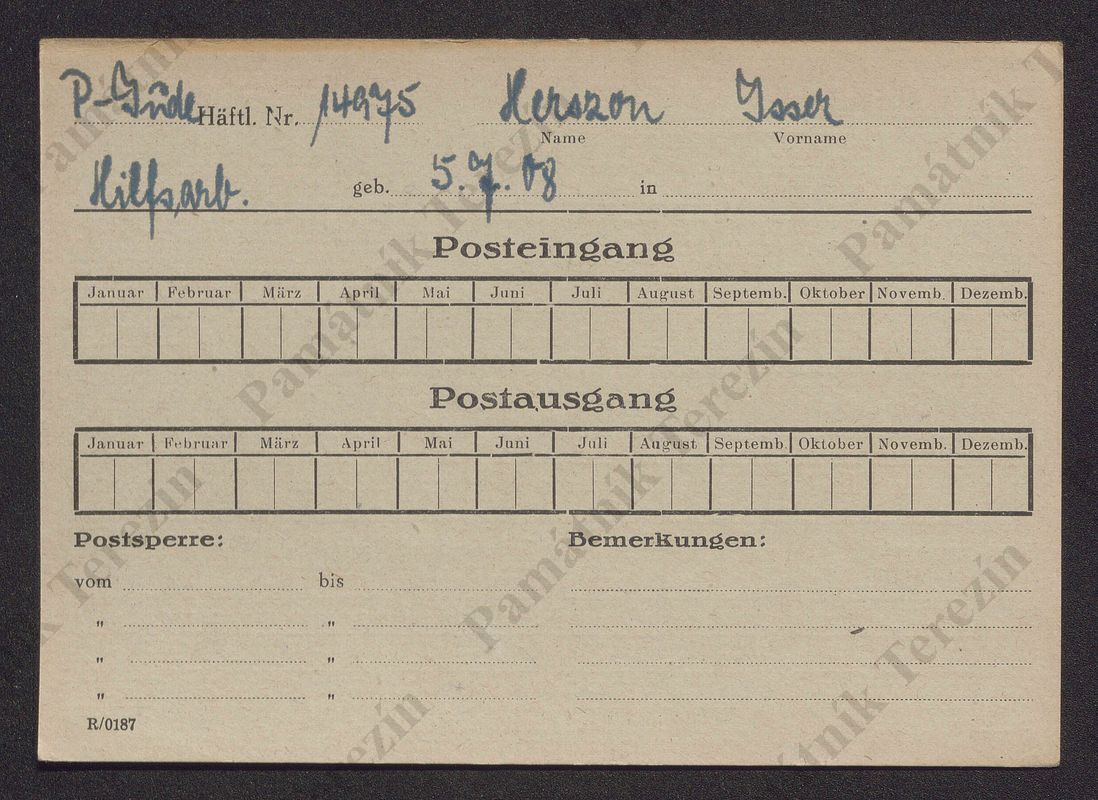 P-Jude Häftl. Nr. 14975 Herszon Isser
Name Vorname
Hilfsarb. geb. 5.7.08 in
Posteingang
Januar Februar März April Mai Juni Juli August Septemb. Oktober Novemb. Dezemb.
Postausgang
Januar Februar März April Mai Juni Juli August Septemb. Oktober Novemb. Dezemb.
Postsperre: Bemerkungen:
vom bis
" "
" "
" "
R/0187
Památník Terezín